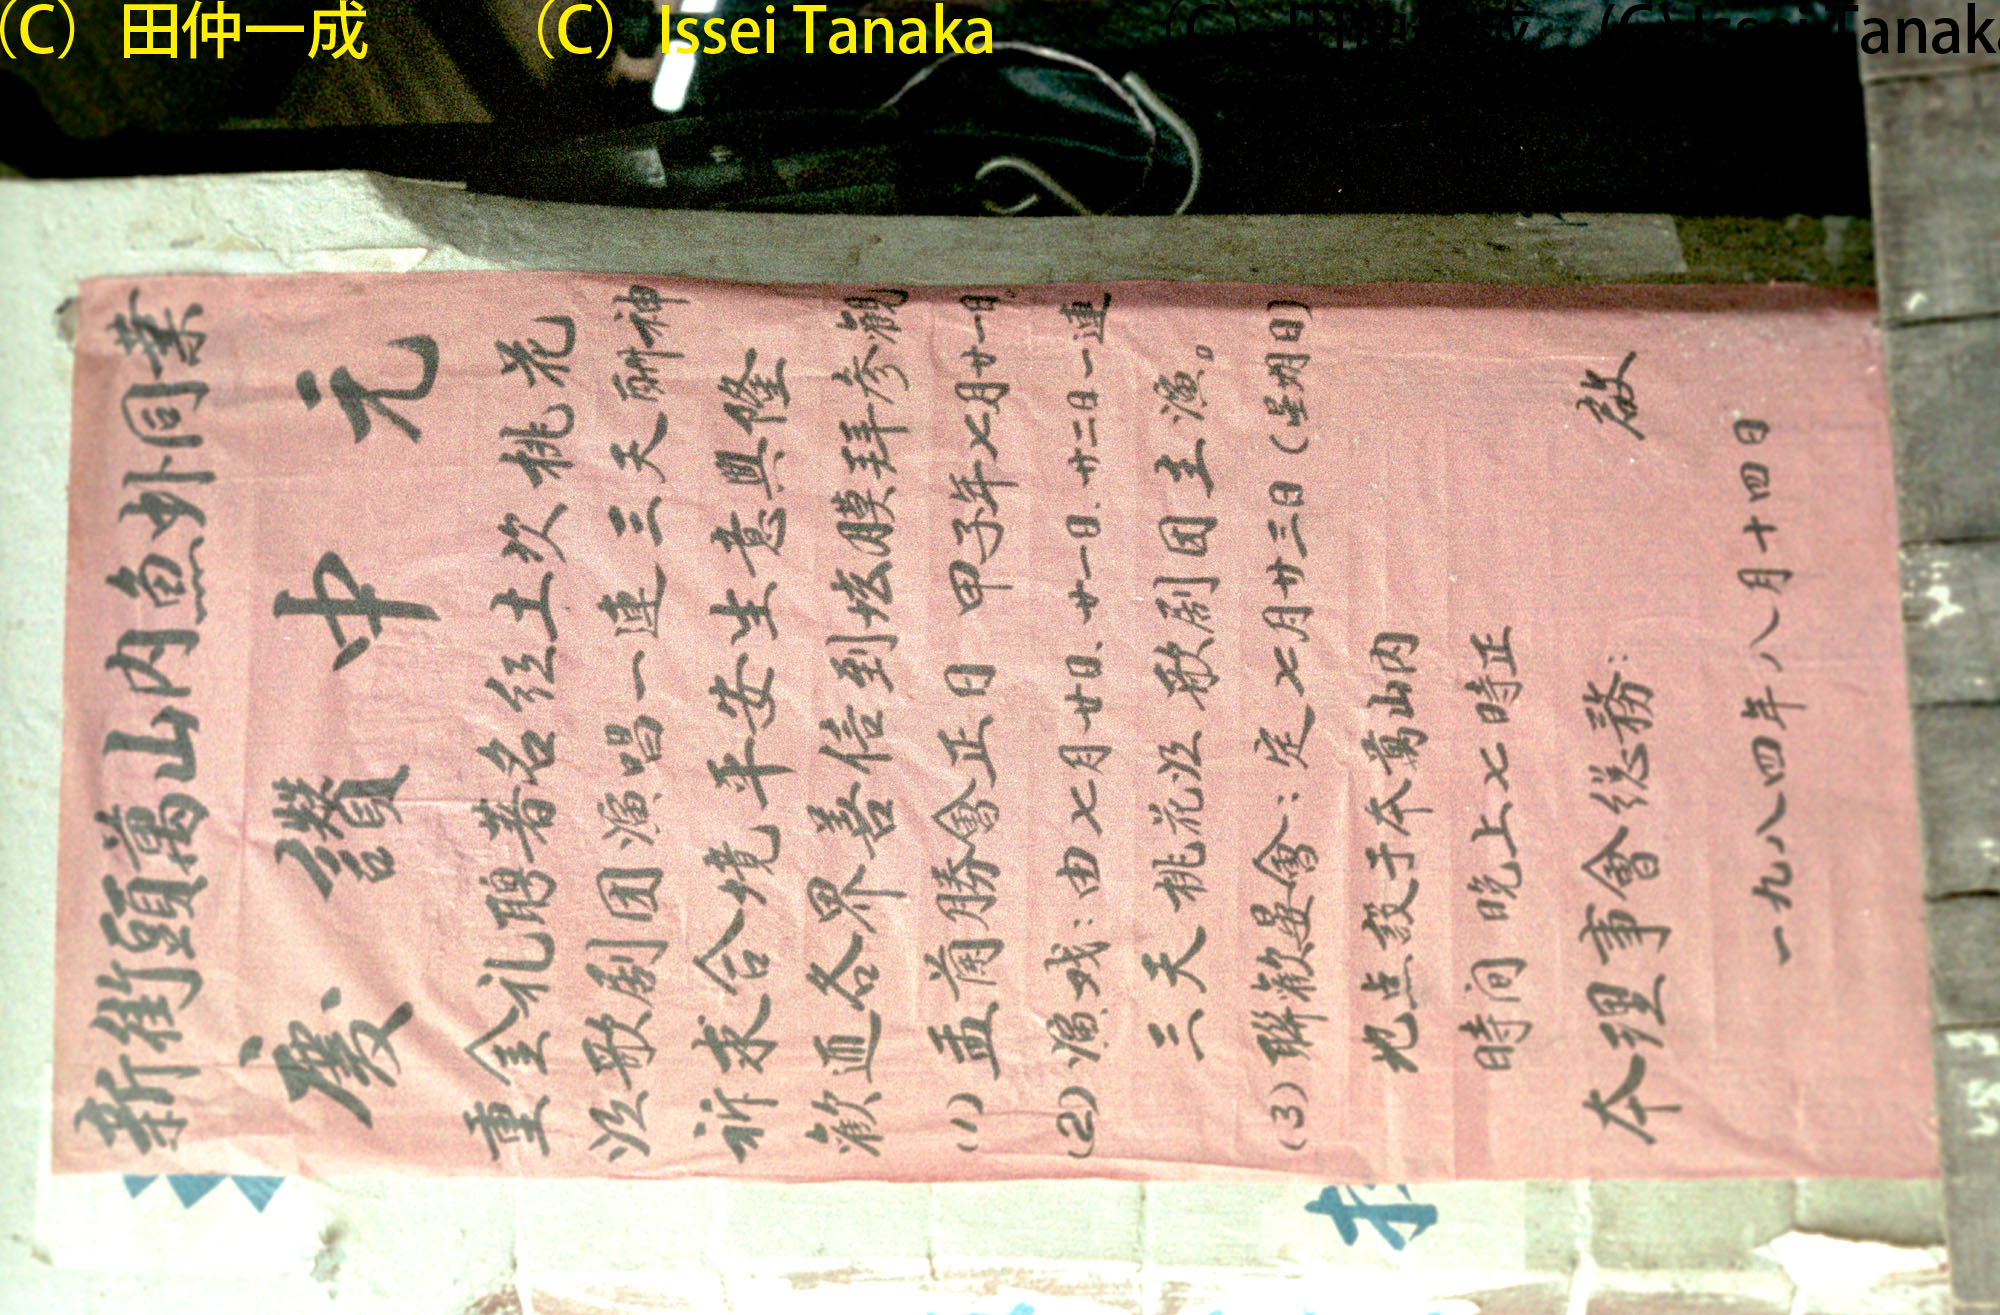 (C) 田仲一成
(C) Issei Tanaka
(C) Issei Tanaka
新街頭萬山内魚虾同業
慶讚中元
重金礼聘著名红土次桃花
江歌劇团演唱一連三天酬神
祈求合境平安生意興隆
歡迎各界善信到坛膜拜参觀
(1) 盂蘭勝會正日 甲子年七月廿一日。
(2) 演戏：由七月廿日、廿一日、廿二日一連
三天桃花江歌剧团主演。
(3) 聯歡晏會：定七月廿三日(星期日)
地点設于本萬山内
時间晚上七時正
本理事會総務： 啟
一九八四年八月十四日